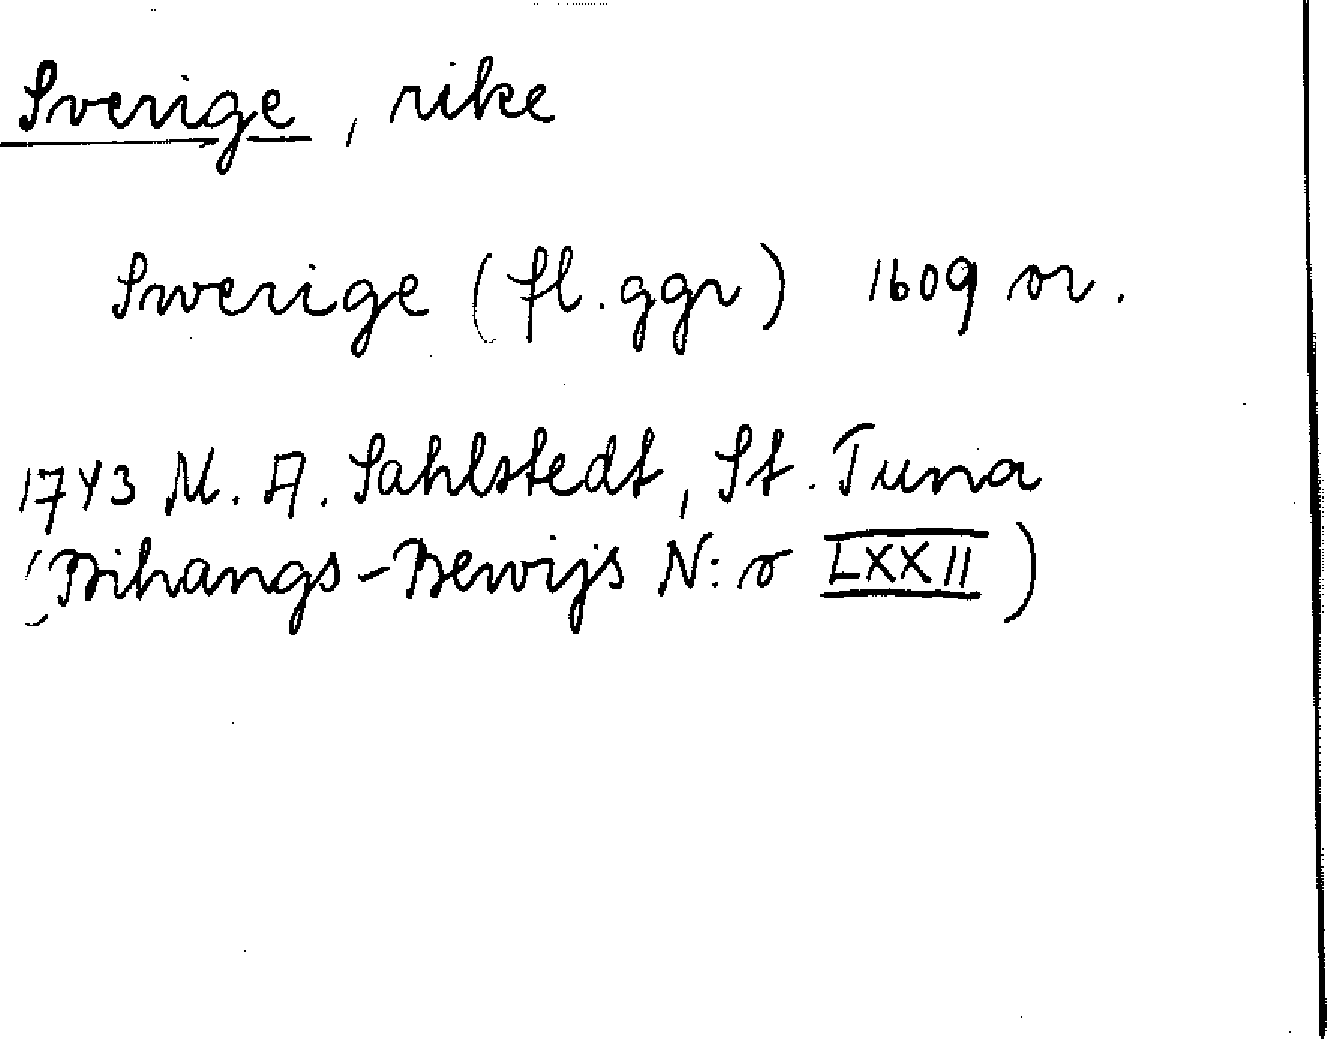 Sverige, rike
Swerige (fl. ggr) 1609 or.
1743 M. A. Sahlstedt, St. Tuna
(Bihangs-Bewijs N:o LXXII)